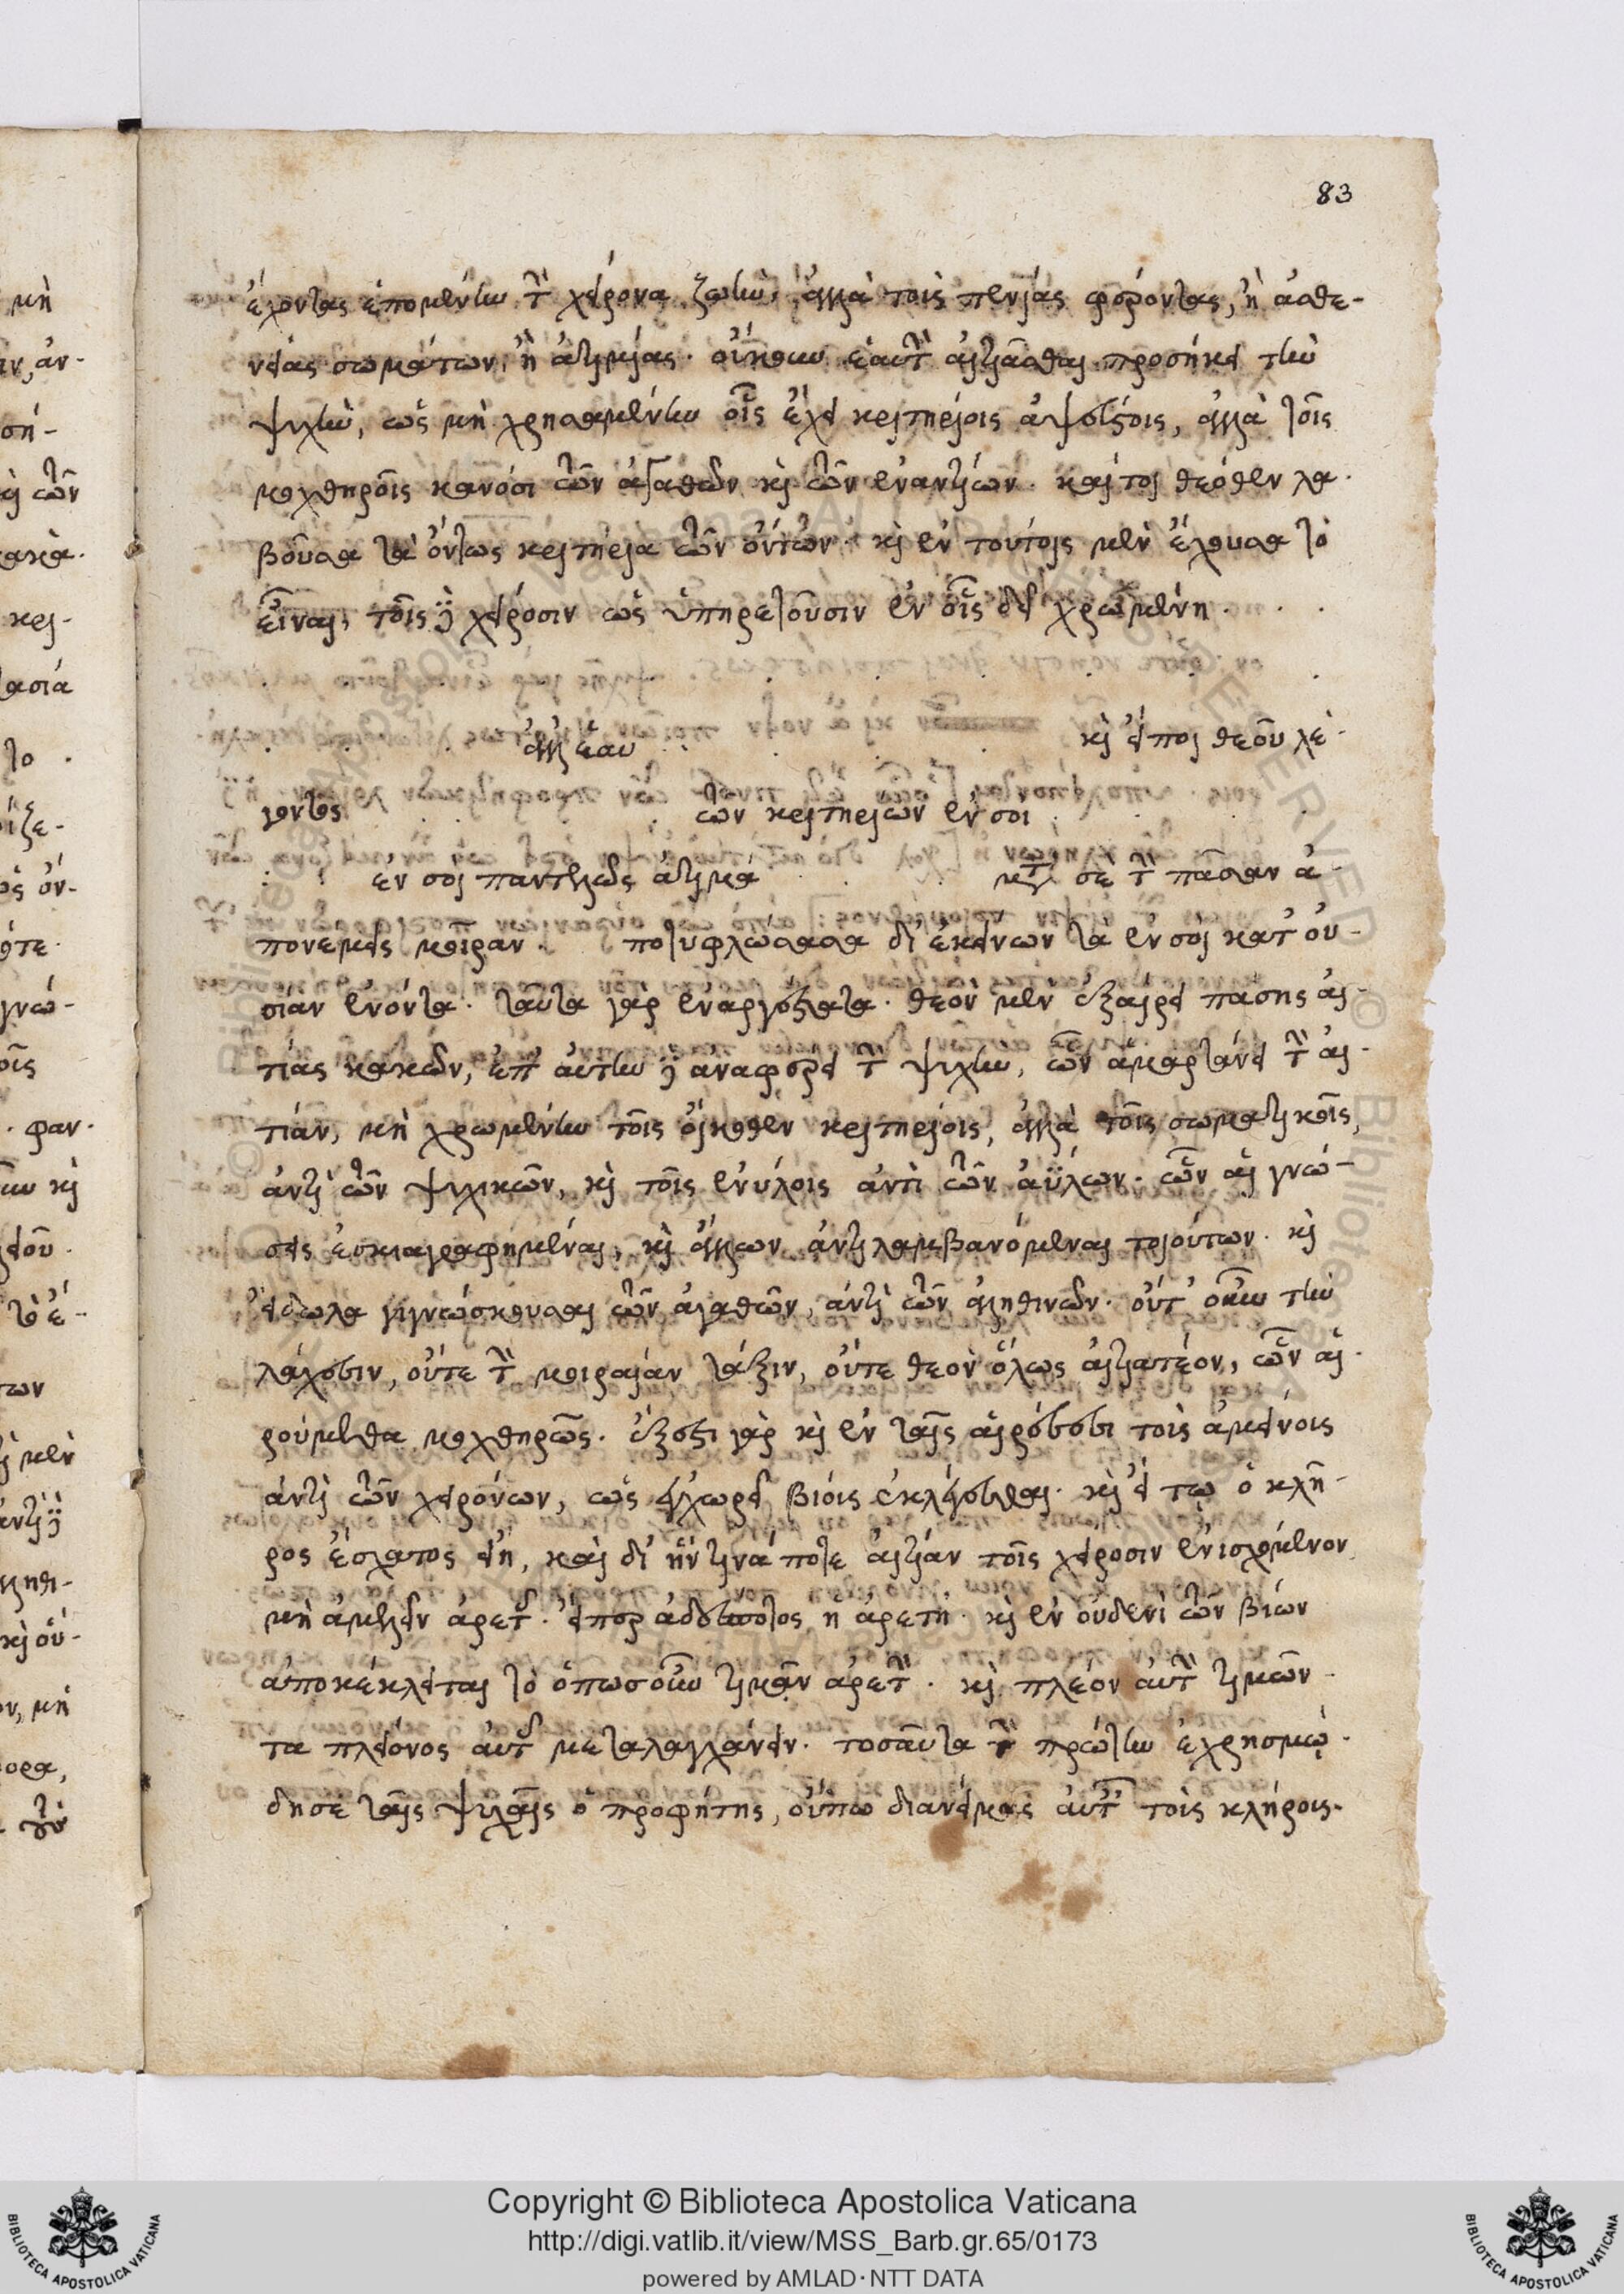 83
ἔχοντας ἑπομένην τὴν χείρονα ζωὴν, ἀλλὰ τοὺς πενίας φέροντας, ἢ ἀσθε-
νείας σωμάτων, ἢ ἀτιμίας. οὐκοῦν ἑαυτὴν αἰτιᾶσθαι προσήκει τὴν
ψυχὴν, ὡς μὴ χρησαμένην οἷς ἔχει κριτηρίοις ἀψεύστοις, ἀλλὰ τοῖς
μοχθηροῖς κανόσι τῶν ἀγαθῶν καὶ τῶν ἐναντίων. καίτοι θεόθεν λα-
βοῦσα τὰ ὄντως κριτήρια τῶν ὄντων. καὶ ἐν τούτοις μὲν ἔχουσα τὸ
εἶναι, τοῖς δὲ χείροσιν ὡς ὑπηρετοῦσιν ἐν οἷς δεῖ χρωμένη . . .
. . . ἀλλ' ἑαυ . . . καὶ εἴποι θεοῦ λέ-
γοντος . . . τῶν κριτηρίων ἐν σοὶ . . .
. . ἐν σοὶ παντελῶς ἄτιμα . . . μετὰ σὲ τὴν πᾶσαν ἀ-
πονεμεῖς μοῖραν. πολυ δι' ἐκείνων τὰ ἐν σοὶ κατ' οὐ-
σίαν ἐνόντα. ταῦτα γὰρ ἐναργέστατα. θεὸν μὲν ἐξαίρει πάσης αἰ-
τίας κακῶν, ἐπ' αὐτὴν δὲ ἀναφέρει τὴν ψυχὴν, ὧν ἁμαρτάνει τὴν αἰ-
τίαν, μὴ χρωμένην τοῖς οἴκοθεν κριτηρίοις, ἀλλὰ τοῖς σωματικοῖς,
ἀντὶ τῶν ψυχικῶν, καὶ τοῖς ἐνύλοις ἀντὶ τῶν ἀΰλων. ὧν αἱ γνώ-
σεις ἐσκιαγραφημέναι, καὶ ἄλλων ἀντιλαμβανόμεναι τοιούτων. καὶ
εἴδωλα γιγνώσκουσαι τῶν ἀγαθῶν, ἀντὶ τῶν ἀληθινῶν. οὔτ' οὖν τὴν
λάχεσιν, οὔτε τὴν μοιραίαν τάξιν, οὔτε θεὸν ὅλως αἰτιατέον, ὧν αἱ-
ρούμεθα μοχθηρῶς. ἔξεστι γὰρ καὶ ἐν ταῖς αἱρέσεσι τοὺς ἀμείνοις
ἀντὶ τῶν χειρόνων, ὡς ἐγχωρεῖ βίοις ἐκλέγεσθαι. καὶ εἴ τῳ ὁ κλῆ-
ρος ἔσχατος εἴη, καὶ δι' ἥντινά ποτε αἰτίαν τοῖς χείροσιν ἐνισχόμενον,
μὴ ἀμελεῖν ἀρετῆς. εἴπερ ἀδέσποτος ἡ ἀρετή. καὶ ἐν οὐδενὶ τῶν βίων
ἀποκέκλεισται τὸ ὁπωσοῦν τιμᾶν ἀρετὴν. καὶ πλέον αὐτὴν τιμῶν-
τα πλείονος αὐτῆς μεταλαγχάνειν. τοσαῦτα τὴν πρώτην ἐχρησμῴ-
δησε ταῖς ψυχαῖς ὁ προφήτης, οὔπω διανείμας αὐτὰς τοῖς κλήροις.
Copyright © Biblioteca Apostolica Vaticana
http://digi.vatlib.it/view/MSS_Barb.gr.65/0173
powered by AMLAD·NTT DATA
BIBLIOTECA APOSTOLICA VATICANA
BIBLIOTECA APOSTOLICA VATICANA